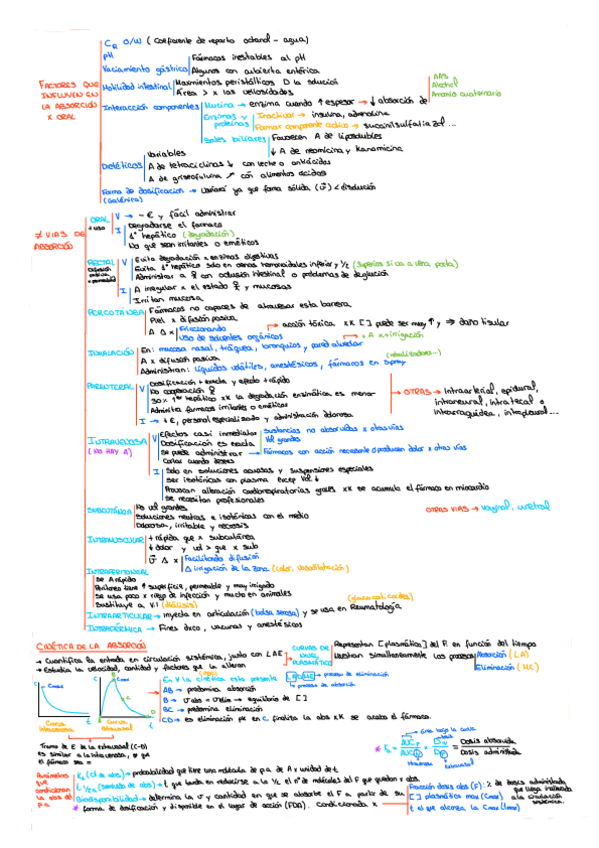 FACTORES QUE INFLUYEN EN LA ABSORCIÓN X ORAL
CR O/W (Coeficiente de reparto octanol - agua)
pH
Vaciamiento gástrico
Fármacos inestables al pH
Algunos con cubierta entérica
Motilidad intestinal
Movimientos peristálticos
Área > x las vellosidades
Interacción componentes
Mucina → enzima cuando ↑ espesor → ↓ absorción de
AAS
Alcohol
Amonio cuaternario
Enzimas y proteínas
Inactivar → insulina, adrenalina
Formar componente activo →
Sales biliares
Favorecen A de liposolubles
↓ A de neomicina y kanamicina
Dietéticos
Variables
A de tetraciclinas ↓ con leche o antiácidos
A de griseofulvina ↗ con alimentos ácidos
Forma de dosificación → variará ya que forma sólida, (v) < disolución
(Galénica)
≠ VIAS DE ABSORCIÓN
ORAL
+ uso
V → - € y fácil administrar
I
Degradarse el fármaco
1º hepático (degradación)
No que sean irritantes o eméticos
RECTAL
Difusión pasiva
V
Evita degradación x enzimas digestivas
Evita 1º hepático solo en venas hemorroidales inferior y ½ (Superior si va a vena porta)
con oclusión intestinal o problemas de deglución
I
A irregular x el estado y mucosas
Irritan mucosa
PERCUTÁNEA
Fármacos no capaces de atravesar esta barrera
Piel x difusión pasiva
A Δ x
Friccionando
Uso de solventes orgánicos
→ acción tóxica xk [ ] puede ser muy ↑ y ⇒ daño tisular
→ + A x + irrigación
INHALACIÓN
En: mucosa nasal, tráquea, bronquios y pared alveolar
A x difusión pasiva
Administran: líquidos volátiles, anestésicos, fármacos en spray
(nebulizadores...)
PARENTERAL
V
Dosificación + exacta y efecto + rápido
No cooperación
degradación enzimática es menor
Admite fármacos irritantes o eméticos
I → + €, personal especializado y administración dolorosa
→ OTRAS → Intraarterial, epidural, intraneural, intratecal o intraraquidea, intrapleural...
INTRAVENOSA
(NO HAY A)
V
Efectos casi inmediatos
Dosificación es exacta
Se puede administrar
Sustancias no absorbidas x otras vías
Vol grandes
Fármacos con acción necesaria o producen dolor x otras vías
Cortar cuando desees
I
Solo en soluciones acuosas y suspensiones especiales
Ser isotónicas con plasma excep Vol ↓
Provocan alteración cardiorespiratorias graves xk se acumula el fármaco en miocardio
Se necesitan profesionales
SUBCUTÁNEA
No vol grandes
Soluciones neutras e isotónicas con el medio
Dolorosa, irritable y necrosis
OTRAS VIAS → vaginal, uretral
INTRAMUSCULAR
+ rápida que x subcutánea
↓ dolor y vol > que x sub
v Δ x
Facilitando difusión
Δ irrigación de la zona (calor, vasodilatación)
INTRAPERITONEAL
Se A rápido
Peritoneo tiene ↑ superficie, permeable y muy irrigado
Se usa poco x riesgo de infección y mucho en animales
Sustituye a V.I (diálisis)
(glucocorticoides)
INTRAARTICULAR → inyecta en articulación (bolsa serosa) y se usa en Reumatología
INTRADÉRMICA → Fines dico, vacunas y anestésicos
CINÉTICA DE LA ABSORCIÓN
→ Cuantifica la entrada en circulación sistémica, junto con LADE
→ Estudia la velocidad, cantidad y factores que la alteran
CURVAS DE NIVEL PLASMÁTICO
Representan [plasmática] del F. en función del tiempo
Muestran simultáneamente los procesos
Absorción (LA)
Eliminación (ME)
LADME
→ proceso de eliminación
→ proceso de absorción
C
t
Curva intravenosa
C
Cmax
A
B
C
D
t
Curva extravasal
En V la cinética está presente
AB → predomina absorción
B → v abs = v elim → equilibrio de [ ]
BC → predomina eliminación
CD → es eliminación pk en C finaliza la abs xk se acaba el fármaco.
Tramo de E de la extravasal (C-D)
es similar a la intravenosa, ⇒ que el fármaco sea =
→ área bajo la curva
= Dosis absorbida / Dosis administrada
→ Intravenosa
→ Extravasal
Parámetros que condicionan la abs de p.a
Ka (ct de abs.) → probabilidad que tiene una molécula de p.a. de A x unidad de t
t ½ a (semivida de abs) → t que tarda en reducirse a la ½ el nº de moléculas del F que quedan x abs.
Biodisponibilidad → determina la v y cantidad en que se absorbe el F a partir de su forma de dosificación y disponible en el lugar de acción (FDA). Condicionada x
Fracción dosis abs (F): % de dosis administrada que llega inalterada a la circulación sistémica.
[ ] plasmática max (Cmax)
t al que alcanza la Cmax (tmax)